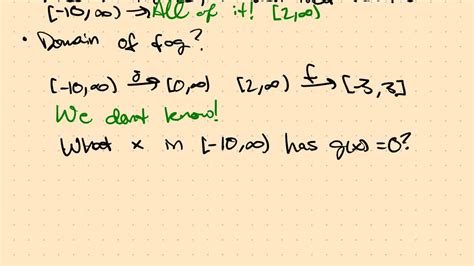 [-10,∞) → All of it! [2,∞)
• Domain of fog?
[-10,∞) g→ [0,∞) [2,∞) f→ [-3,3]
We dont know!
What x in [-10,∞) has g(x)=0?